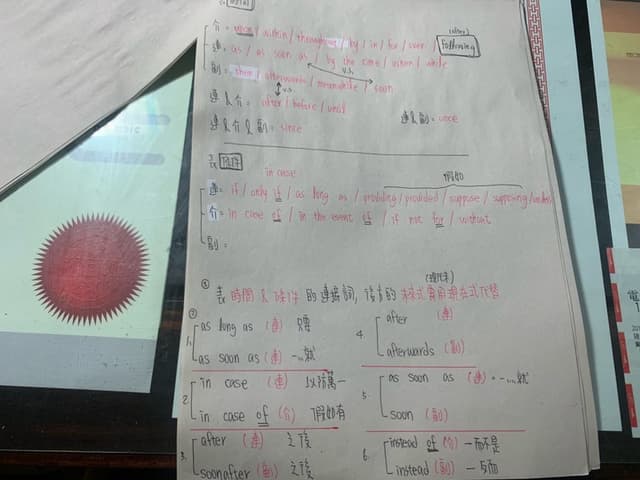 介 = upon / within / throughout / by / in / for / over /
(after)
following
連 = as / as soon as / by the time / when / while
v.s.
副 = then / afterwards / meanwhile / soon
v.s.
連 & 介 = after / before / until
連 & 副 = once
連 & 介 & 副 = since
表 條件
in case
假如
連 = if / only if / as long as / providing / provided / suppose / supposing / unless
介 = in case of / in the event of / if not for / without
副 =
表 時間 & 條件 的連接詞, 後方的 未來式需用現在式代替
1. as long as (連) 只要
as soon as (連) 一...就
2. in case (連) 以防萬一
in case of (介) 假如有
3. after (連) 之後
soonafter (副) 之後
4. after (連)
afterwards (副)
5. as soon as (連) = 一...就
soon (副)
6. instead of (介) 一而不是
instead (副) 一反而